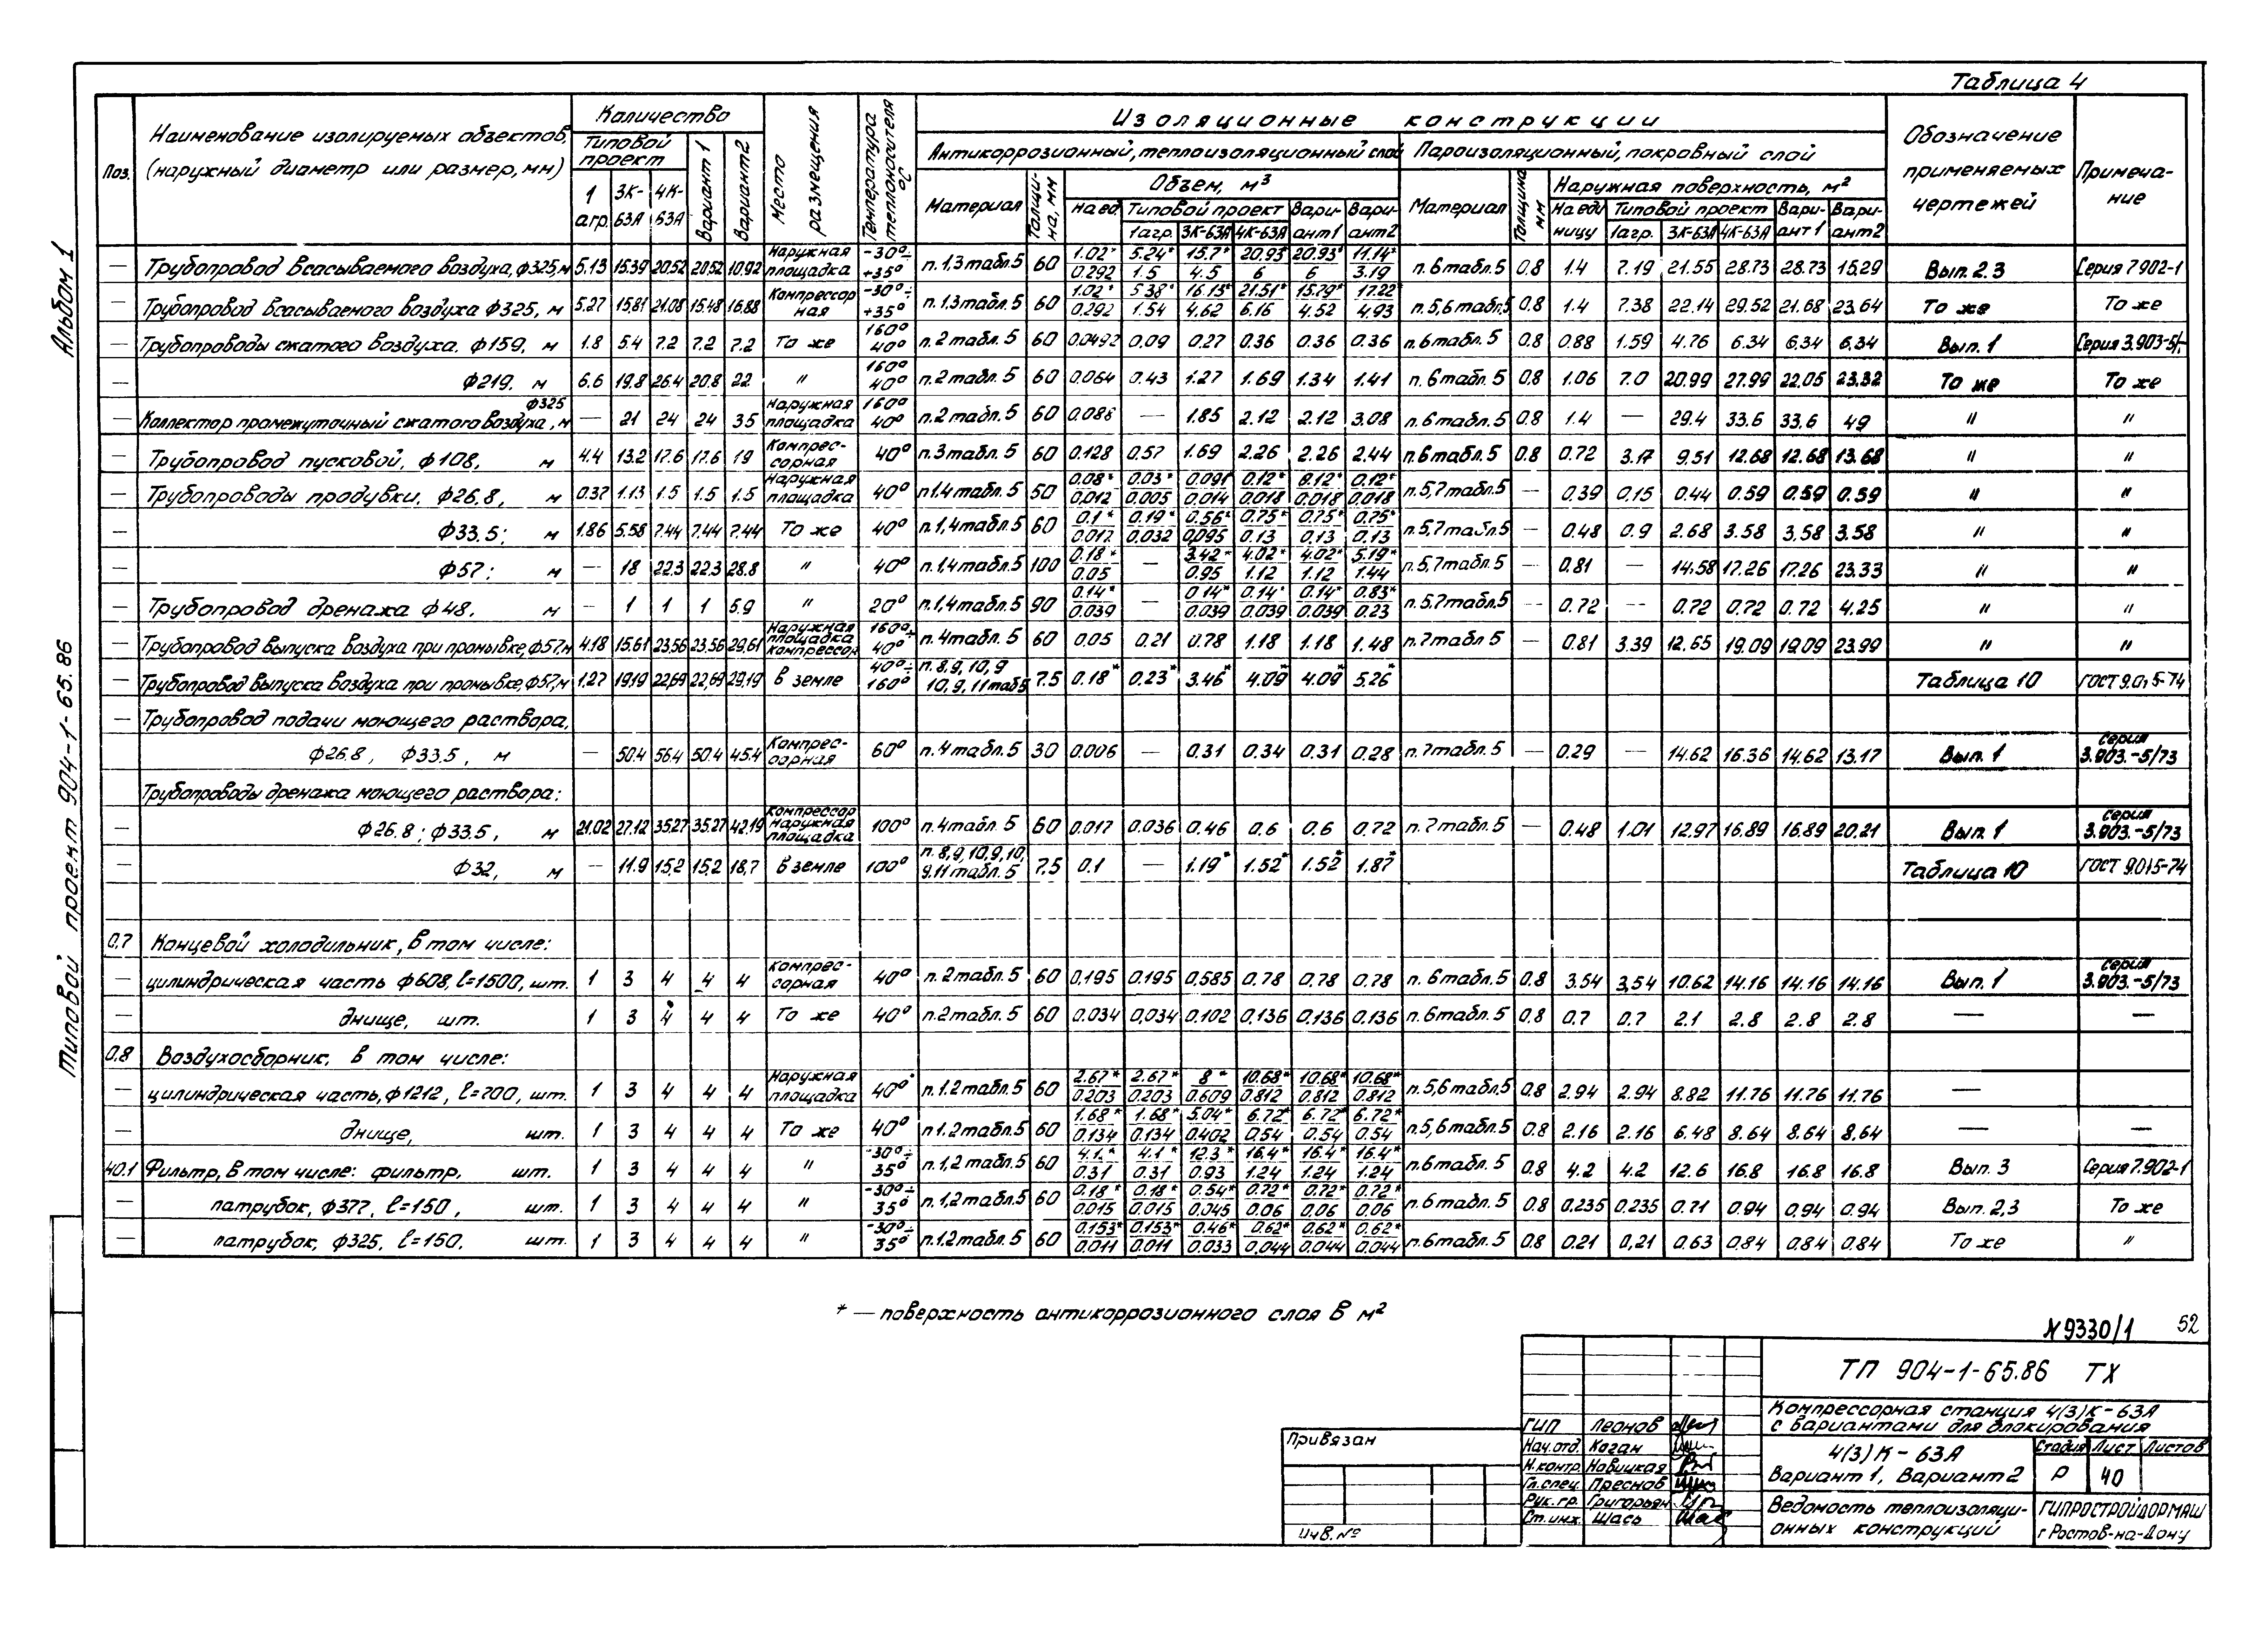 Таблица 4
Альбом 1
Типовой проект 904-1-65.86
Поз.
Наименование изолируемых объектов, (наружный диаметр или размер, мм)
Количество
Типовой проект
1 агр.
3К-63А
4К-63А
Вариант 1
Вариант 2
Место размещения
Температура теплоносителя °С
Изоляционные конструкции
Антикоррозионный, теплоизоляционный слой
Пароизоляционный, покровный слой
Материал
Толщина, мм
Объем, м³
На ед.
Типовой проект
1агр. 3К-63А 4К-63А
Вариант 1
Вариант 2
Материал
Толщина мм
Наружная поверхность, м²
На единицу
Типовой проект
1агр. 3К-63А 4К-63А
Вариант 1
Вариант 2
Обозначение применяемых чертежей
Примечание
— Трубопровод всасываемого воздуха, ф325, м 5.13 15.39 20.52 20.52 10.92 Наружная площадка -30°÷+35° п.1,3 табл.5 60 1.02*/0.292 5.24*/1.5 15.7*/4.5 20.93*/6 20.93*/6 11.14*/3.19 п.6 табл.5 0.8 1.4 7.19 21.55 28.73 28.73 15.29 Вып. 2.3 Серия 7.902-1
— Трубопровод всасываемого воздуха ф325, м 5.27 15.81 21.08 15.48 16.88 Компрессорная -30°÷+35° п.1.3 табл.5 60 1.02*/0.292 5.38*/1.54 16.13*/4.62 21.51*/6.16 15.79*/4.52 17.22*/4.93 п.5,6 табл.5 0.8 1.4 7.38 22.14 29.52 21.68 23.64 То же То же
— Трубопроводы сжатого воздуха. ф159, м 1.8 5.4 7.2 7.2 7.2 То же 160° 40° п.2 табл. 5 60 0.0492 0.09 0.27 0.36 0.36 0.36 п.6 табл. 5 0.8 0.88 1.59 4.76 6.34 6.34 6.34 Вып. 1 Серия 3.903-5/-
— ф219, м 6.6 19.8 26.4 20.8 22 " 160° 40° п.2 табл. 5 60 0.064 0.43 1.27 1.69 1.34 1.41 п. 6 табл. 5 0.8 1.06 7.0 20.99 27.99 22.05 23.32 То же То же
— Коллектор промежуточный сжатого воздуха, ф325 м — 21 24 24 35 Наружная площадка 160° 40° п.2 табл. 5 60 0.088 — 1.85 2.12 2.12 3.08 п.6 табл. 5 0.8 1.4 — 29.4 33.6 33.6 49 " "
— Трубопровод пусковой, ф108, м 4.4 13.2 17.6 17.6 19 Компрессорная 40° п.3 табл. 5 60 0.128 0.57 1.69 2.26 2.26 2.44 п.6 табл. 5 0.8 0.72 3.17 9.51 12.68 12.68 13.68 " "
— Трубопроводы продувки. ф26.8, м 0.37 1.13 1.5 1.5 1.5 Наружная площадка 40° п.1.4 табл. 5 50 0.08*/0.012 0.03*/0.005 0.091*/0.014 0.12*/0.018 0.12*/0.018 0.12*/0.018 п.5,7 табл.5 — 0.39 0.15 0.44 0.59 0.59 0.59 " "
— ф33.5; м 1.86 5.58 7.44 7.44 7.44 То же 40° п.1,4 табл.5 60 0.1*/0.017 0.19*/0.032 0.56*/0.095 0.75*/0.13 0.75*/0.13 0.75*/0.13 п.5,7 табл.5 — 0.48 0.9 2.68 3.58 3.58 3.58 " "
— ф57; м — 18 22.3 22.3 28.8 " 40° п.1,4 табл.5 100 0.18*/0.05 — 3.42*/0.95 4.02*/1.12 4.02*/1.12 5.19*/1.44 п.5,7 табл.5 — 0.81 — 14.58 17.26 17.26 23.33 " "
— Трубопровод дренажа ф48, м — 1 1 1 5.9 " 20° п.1,4 табл.5 90 0.14*/0.039 — 0.14*/0.039 0.14*/0.039 0.14*/0.039 0.83*/0.23 п.5.7 табл.5 — 0.72 — 0.72 0.72 0.72 4.25 " "
— Трубопровод выпуска воздуха при промывке, ф57, м 4.18 15.61 23.56 23.56 29.61 Наружная площадка компрессор 160°÷40° п.4 табл. 5 60 0.05 0.21 0.78 1.18 1.18 1.48 п.7 табл. 5 — 0.81 3.39 12.65 19.09 19.09 23.99 " "
— Трубопровод выпуска воздуха при промывке, ф57, м 1.27 19.19 22,69 22,69 29.19 в земле 40°÷160° п.8,9,10,9 10,9,11 табл.5 7.5 0.18* 0.23* 3.46* 4.09* 4.09* 5.26* Таблица 10 ГОСТ 9.015-74
— Трубопровод подачи моющего раствора,
ф26.8, ф33.5, м — 50.4 56.4 50.4 45.4 Компрессорная 60° п.4 табл. 5 30 0.006 — 0.31 0.34 0.31 0.28 п.7 табл. 5 — 0.29 — 14.62 16.36 14.62 13.17 Вып. 1 Серия 3.903.-5/73
Трубопроводы дренажа моющего раствора:
— ф26.8; ф33.5, м 21.02 27.12 35.27 35.27 42.19 Компрессор наружная площадка 100° п.4 табл. 5 60 0.017 0.036 0.46 0.6 0.6 0.72 п.7 табл. 5 — 0.48 1.01 12.97 16.89 16.89 20.21 Вып. 1 Серия 3.903.-5/73
— ф32, м — 11.9 15,2 15,2 18,7 в земле 100° п.8,9,10,9,10, 9.11 табл. 5 7.5 0.1 — 1.19* 1.52* 1.52* 1.87* Таблица 10 ГОСТ 9.015-74
0.7 Концевой холодильник, в том числе:
— цилиндрическая часть ф608, ℓ=1500, шт. 1 3 4 4 4 Компрессорная 40° п.2 табл. 5 60 0.195 0.195 0.585 0.78 0.78 0.78 п. 6 табл. 5 0.8 3.54 3,54 10.62 14.16 14.16 14.16 Вып. 1 Серия 3.903.-5/73
— днище, шт. 1 3 4 4 4 То же 40° п.2 табл. 5 60 0.034 0,034 0.102 0,136 0.136 0.136 п. 6 табл. 5 0.8 0.7 0.7 2.1 2.8 2.8 2.8 — —
0.8 Воздухосборник, в том числе:
— цилиндрическая часть, ф1212, ℓ=700, шт. 1 3 4 4 4 Наружная площадка 40° п.1.2 табл. 5 60 2.67*/0.203 2.67*/0.203 8*/0.609 10.68*/0.812 10.68*/0.812 10.68*/0.812 п.5,6 табл.5 0.8 2.94 2.94 8.82 11.76 11.76 11.76 —
— днище, шт. 1 3 4 4 4 То же 40° п.1.2 табл. 5 60 1.68*/0.134 1.68*/0.134 5.04*/0.402 6.72*/0.54 6.72*/0.54 6.72*/0.54 п.5,6 табл.5 0.8 2.16 2.16 6.48 8.64 8.64 8.64 — —
40.1 Фильтр, в том числе: фильтр, шт. 1 3 4 4 4 " -30°÷35° п.1,2 табл. 5 60 4.1*/0.31 4.1*/0.31 12.3*/0.93 16.4*/1.24 16.4*/1.24 16.4*/1.24 п.6 табл. 5 0.8 4.2 4.2 12.6 16.8 16.8 16.8 Вып. 3 Серия 7.902-1
— патрубок, ф377, ℓ=150, шт. 1 3 4 4 4 " -30°÷35° п.1,2 табл.5 60 0.18*/0.015 0.18*/0.015 0.54*/0.045 0.72*/0.06 0.72*/0.06 0.72*/0.06 п.6 табл. 5 0.8 0.235 0.235 0.71 0.94 0,94 0.94 Вып. 2,3 То же
— патрубок, ф325, ℓ=150, шт. 1 3 4 4 4 " -30°÷35° п.1,2 табл. 5 60 0.153*/0.011 0.153*/0.011 0.46*/0.033 0.62*/0.044 0.62*/0.044 0.62*/0.044 п.6 табл. 5 0.8 0.21 0,21 0.63 0,84 0.84 0.84 То же "
* — поверхность антикоррозионного слоя в м²
N 9330/1 52
ТП 904-1-65.86 ТХ
Компрессорная станция 4(3)К-63А
с вариантами для блокирования
4(3)К-63А
Вариант 1, Вариант 2
Стадия Лист Листов
Р 40
Ведомость теплоизоляционных конструкций
ГИПРОСТРОЙДОРМАШ
г Ростов-на-Дону
ГИП Леонов
Нач.отд. Коган
Н.контр. Новицкая
Гл.спец. Преснов
Рук.гр. Григорьян
Ст.инж. Шась
Привязан
Инв. №